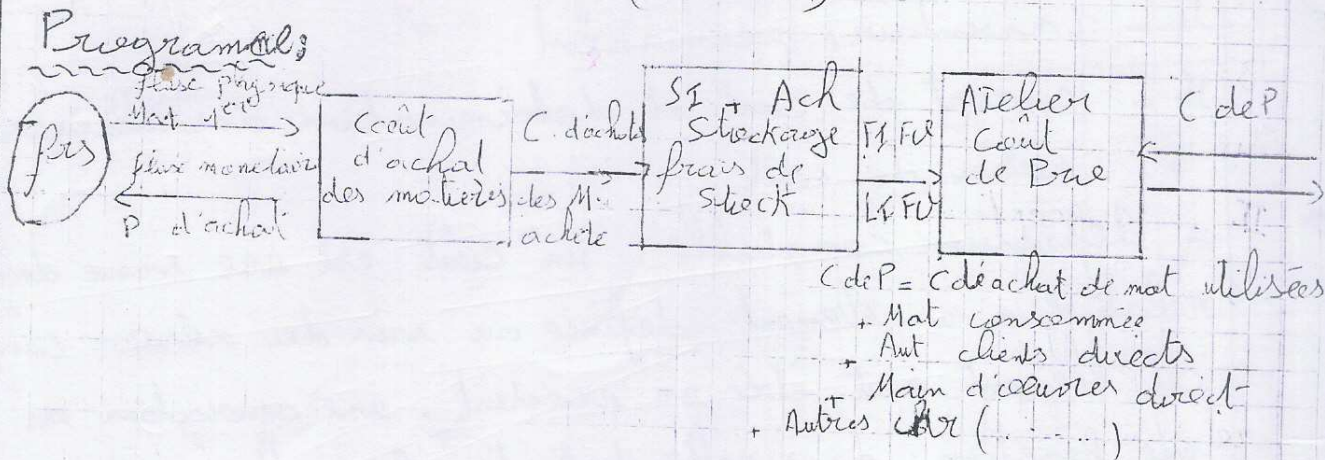 Programme:
frs
flux physique
Mat 1ère
flux monetaire
P d'achat
Coût
d'achat
des matières
C. d'achats
des M.
achété
SI + Ach
Stockage
frais de
Stock
Atelier
Coût
de
C de P
C de P = C de achat de mat utilisées
+ Mat consommée
+ Aut clients directs
+ Main d'oeuvres direct
+ Autres (.......)